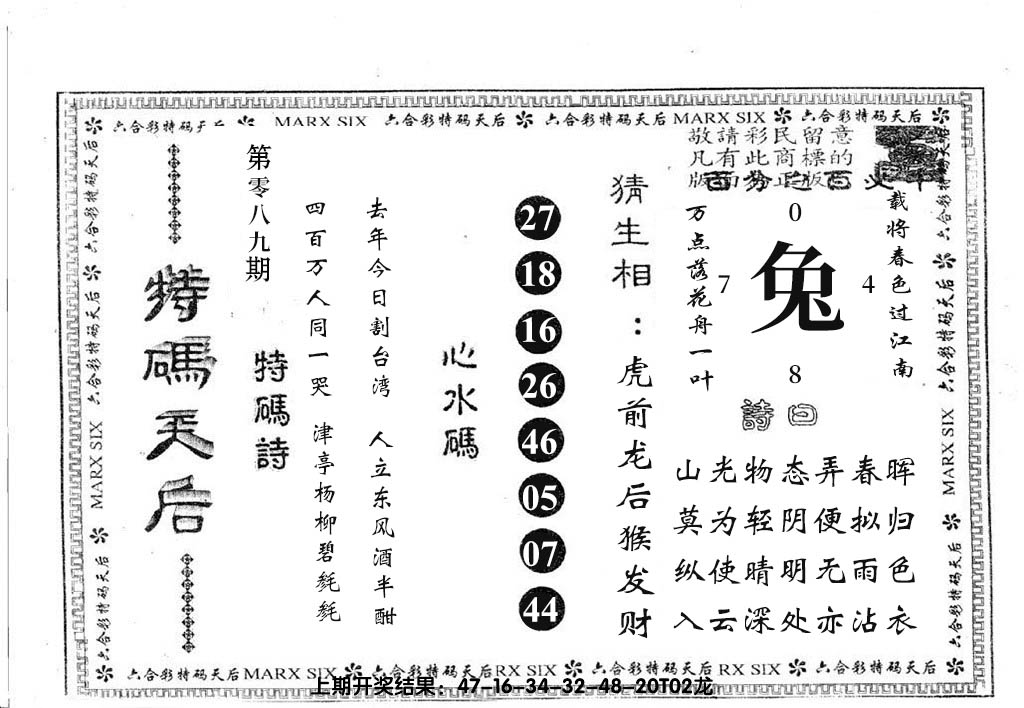 MARX SIX 六合彩特码天后 六合彩特码天后 MARX SIX 六合彩特码天后
六合彩特码天后 六合彩特码天后 MARX SIX 六合彩特码天后
特碼天后
第零八九期
特碼詩
四百万人同一哭 津亭杨柳碧毵毵
去年今日割台湾 人立东风酒半酣
心水碼
27
18
16
26
46
05
07
44
猜生相：虎前龙后猴发财
敬請彩民留意
凡有此商標的
万点落花舟一叶
0
7 兔 4
8
载将春色过江南
詩曰
山光物态弄春晖
莫为轻阴便拟归
纵使晴明无雨色
入云深处亦沾衣
六合彩特码天后 六合彩特码天后 MARX SIX 六合彩特码天后
六合彩特码天后 MARX SIX 六合彩特码天后 RX SIX 六合彩特码天后 RX SIX 六合彩特码天后
上期开奖结果：47-16-34-32-48-20T02龙